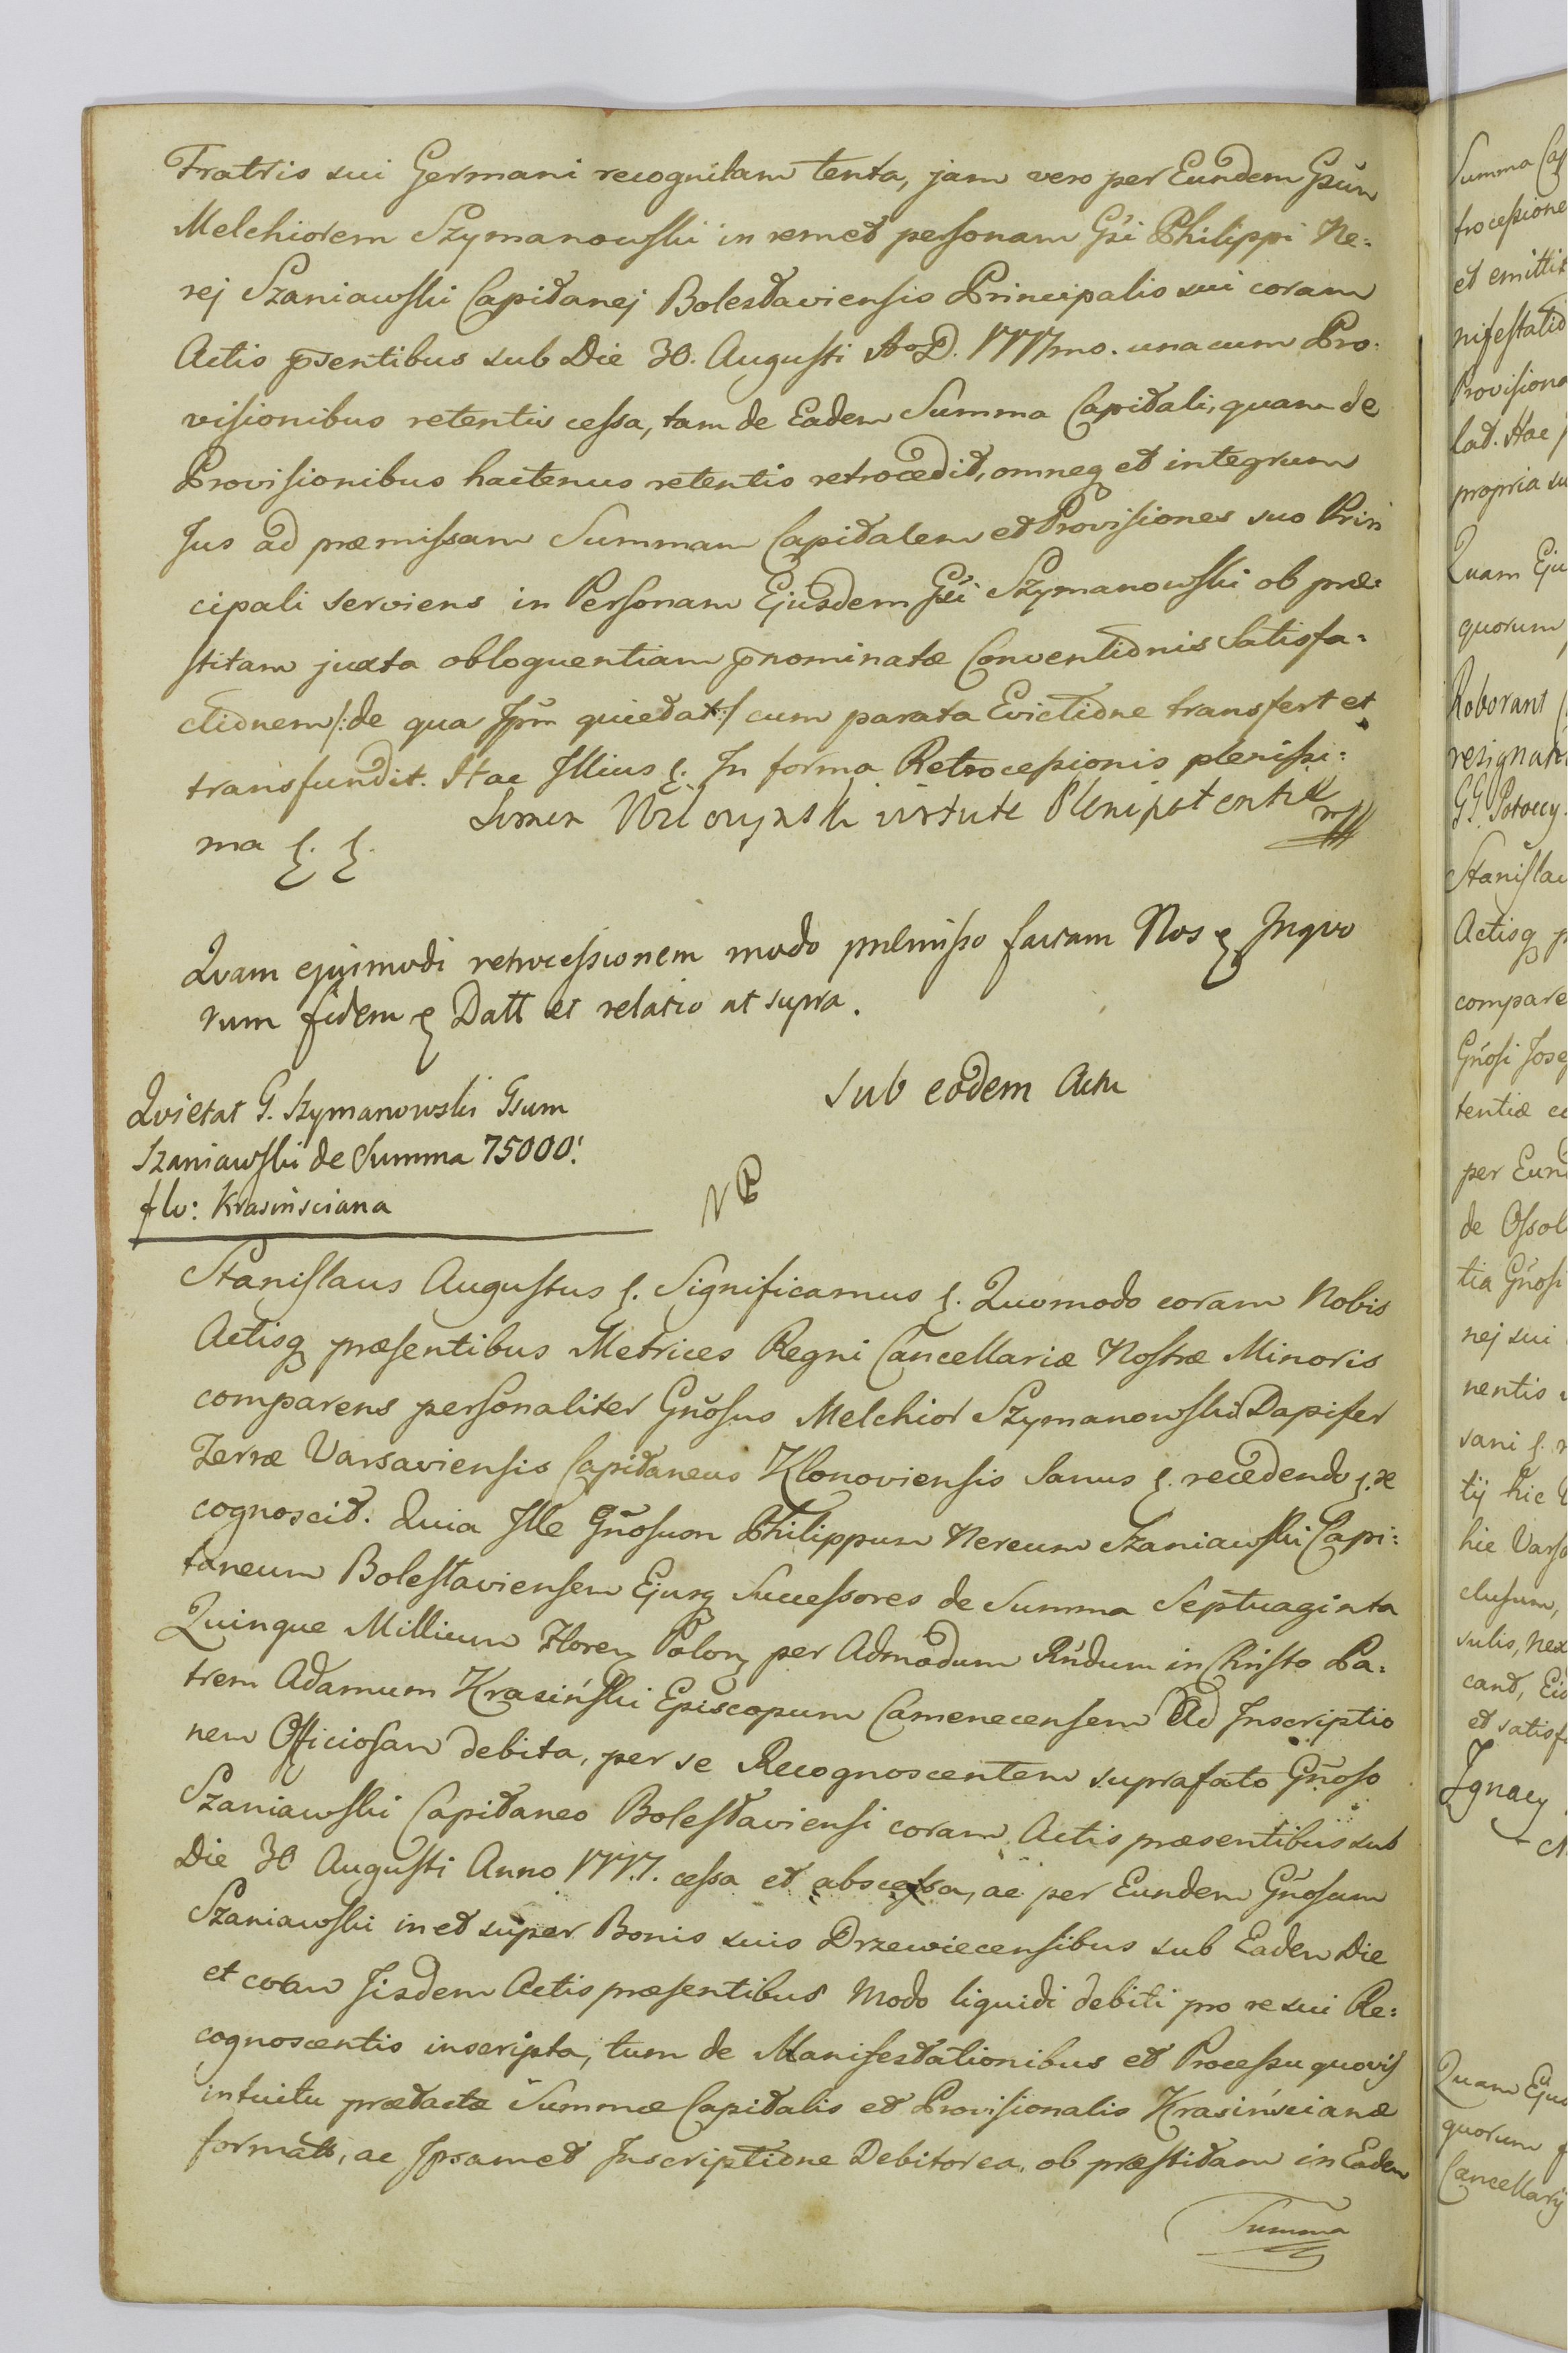 Fratris sui Germani recognitam tenta, jam vero per Eundem Gsūm
Melchiorem Szymanowski in remet personam Gsi Philippi Ne:
rej Szaniawski Capitanej Boleslaviensis Principalis sui coram
Actis p̄sentibus sub Die 30. Augusti AoD. 1777mo. una cum Pro:
visionibus retentis cessa, tam de Eadem Summa Capitali, quam de
Provisionibus hactenus retentis retrocedit, omneq et integrum
Jus ad præmissam Summam Capitalem et Provisiones suo Prin
cipali serviens in Personam Ejusdem Gsi Szymanowski ob præ:
stitam juxta obloquentiam p̄nominatæ Conventionis Satisfa:
ctionem /: de qua Jpm̄ quietat :/ cum parata Evictione transfert et
transfundit. Hac Illius ę. In forma Retrocessionis plenissi:
ma ę. ę.
virtute Plenipotentiæ mp
Quam ejusmodi retrocessionem modo præmisso factam Nos ę Inquo
rum fidem ę Datt et relatio ut supra.
Sub eodem Actu
Quietat G. Szymanowski Gsum
Szaniawski de Summa 75000.
flo: Krasinsciana
Stanislaus Augustus ę. Significamus ę. Quomodo coram Nobis
Actisq præsentibus Metrices Regni Cancellariæ Nostræ Minoris
comparens personaliter Gn̄osus Melchior Szymanowski Dapifer
Terræ Varsaviensis Capitaneus Klonoviensis Sanus ę. recedendo ę. re
cognoscit. Quia Ille Gn̄osum Philippum Nereum Szaniawski Capi:
taneum Boleslaviensem Ejusq Successores de Summa Septuaginta
Quinque Millium Floren Polon per Admodum Rn̄dum in Christo Pa:
trem Adamum Krasiński Episcopum Camenecensem Ad Inscriptio
nem Officiosam debita, per se Recognoscentem suprafato Gn̄oso
Szaniawski Capitaneo Boleslaviensi coram Actis præsentibus sub
Die 30 Augusti Anno 1777. cessa et abscessa, ac per Eundem Gn̄osum
Szaniawski in et super Bonis suis Drzewiecensibus sub Eadem Die
et coram Iisdem Actis præsentibus Modo liquidi debiti pro re sui Re:
cognoscentis inscripta, tum de Manifestationibus et Processu quovis
intuitu prætactæ Summæ Capitalis et Provisionalis Krasinscianæ
formatt, ac Ipsamet Inscriptione Debitorea, ob præstitam in Eadem
Summa